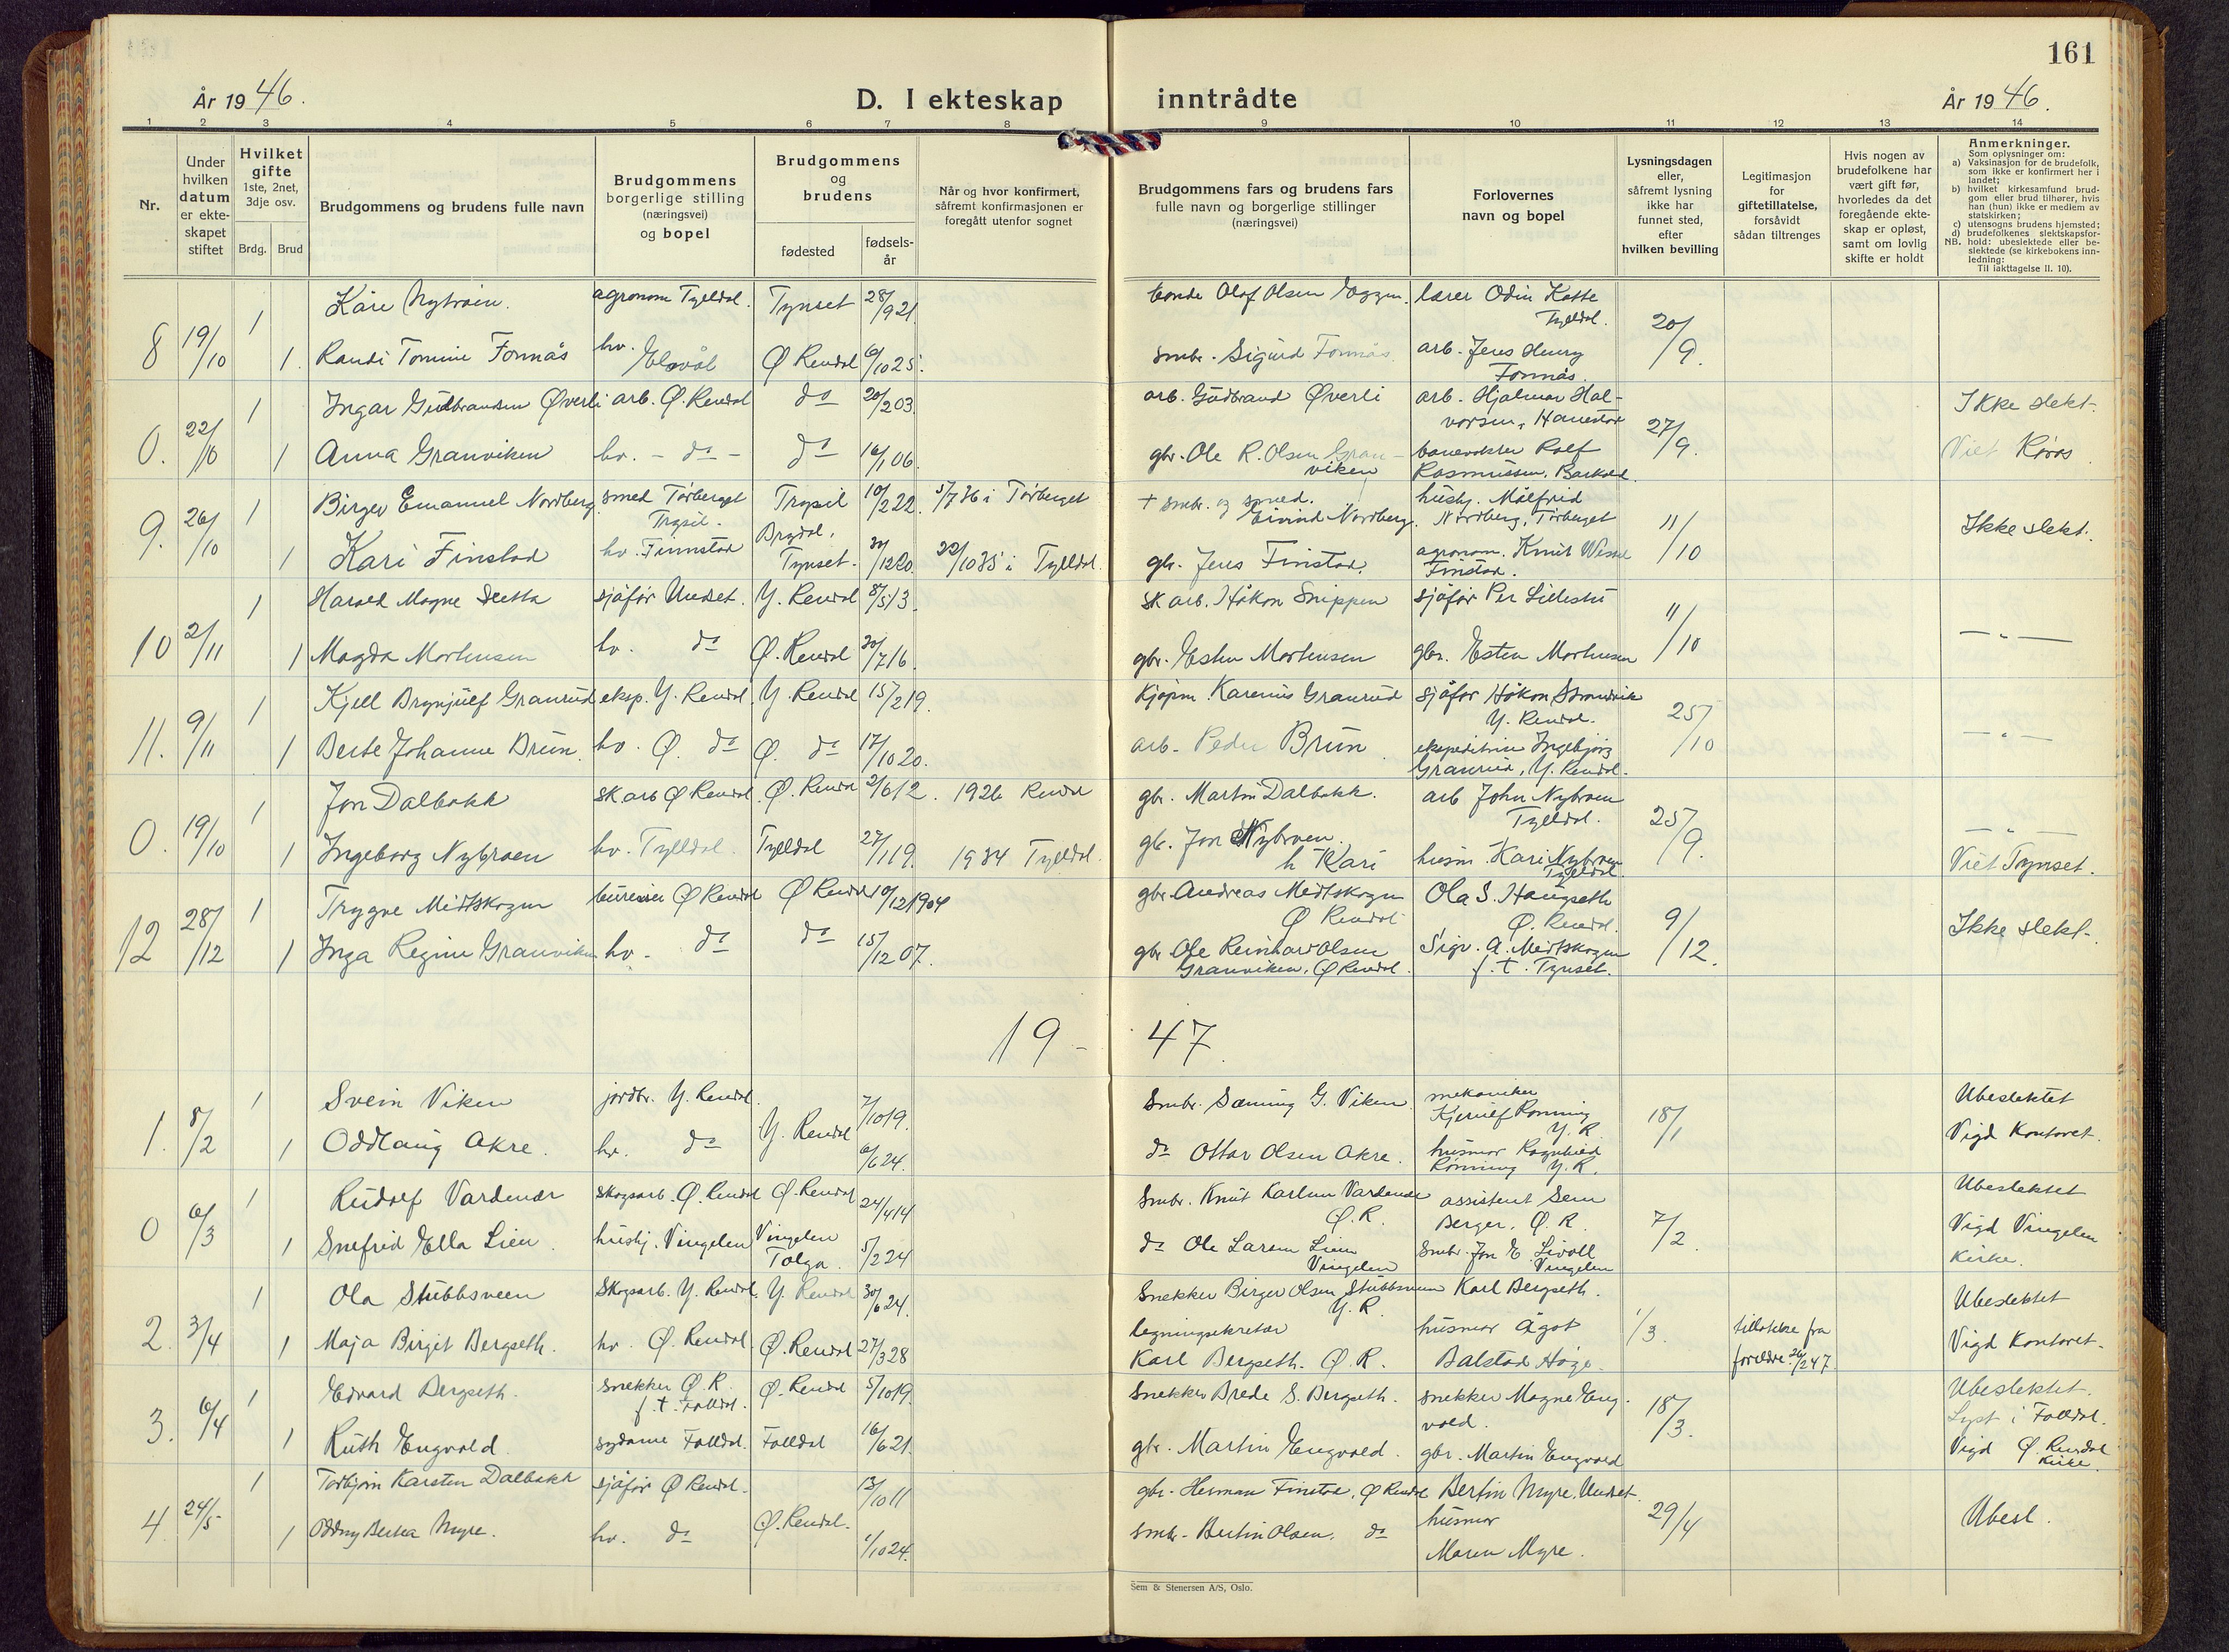 161
År 1946.
D. I ekteskap inntrådte
År 1946.
1 2 3 4 5 6 7 8 9 10 11 12 13 14
Nr.
Under hvilken datum er ekteskapet stiftet
Hvilket gifte 1ste, 2net, 3dje osv.
Brdg. Brud
Brudgommens og brudens fulle navn
Brudgommens borgerlige stilling (næringsvei) og bopel
Brudgommens og brudens
fødested
fødselsår
Når og hvor konfirmert, såfremt konfirmasjonen er foregått utenfor sognet
Brudgommens fars og brudens fars fulle navn og borgerlige stillinger (næringsvei)
Forlovernes navn og bopel
Lysningsdagen eller, såfremt lysning ikke har funnet sted, efter hvilken bevilling
Legitimasjon for giftetillatelse, forsåvidt sådan tiltrenges
Hvis nogen av brudefolkene har vært gift før, hvorledes da det foregående ekteskap er opløst, samt om lovlig skifte er holdt
Anmerkninger.
Som oplysninger om:
a) Vaksinasjon for de brudefolk, som ikke er konfirmert her i landet;
b) hvilket kirkesamfund brudgom eller brud tilhører, hvis han (hun) ikke er medlem av statskirken;
c) utensogns brudens hjemsted;
d) brudefolkenes slektskapsforhold: ubeslektede eller beslektede (se kirkebokens innledning:
NB. Til iakttagelse II. 10).
8 19/10 1 Kåre Nybroen. agronom Tylldal. Tynset 28/9 21. bonde Olaf Olsen lærer Odin Kotte Tylldal. 20/9.
1. Randi Tomine Fonnås hv. Elvål Ø Rendal 6/10 25. smbr. Sigurd Fonnås. arb. Jens Henry Fonnås.
0. 22/10 1 Ingar Gudbrandsen Øverli arb. Ø. Rendal do 20/2 03. arb. Gudbrand Øverli arb. Hjalmar Halvorsen, Hanestad 27/9. Ikke slekt.
1 Anna Granviken hv. - do - do 16/1 06. gbr. Ole R. Olsen Granviken banevokter Rolf Rasmussen, Barkald. Viet Røros
9. 26/10 1 Birger Emanuel Nordberg smed Tørberget Trysil. Trysil 10/2 22. 5/7 36 i Tørberget + smbr. og smed. Eivind Nordberg. husbj. Målfrid Nordberg, Tørberget 11/10 Ikke slekt.
1 Kari Finstad hv. Finnstad Brydal, Tynset. 30/12 20. 22/10 35 i Tylldal. gbr. Jens Finstad. agronom. Knut Finstad.
10 2/11 1 Harald Magne sjåfør Undset. Y. Rendal 8/5 13. sk arb. Håkon Snippen sjåfør Per 11/10 — " —
1 Magda Mortensen hv. do Ø. Rendal 30/7 16. gbr. Esten Mortensen gbr. Esten Mortensen
11. 9/11 1 Kjell Brynjulf Granrud eksp. Y. Rendal. Y. Rendal 15/2 19. kjøpm. Karenus Granrud sjåfør Håkon Y. Rendal. 25/10 — " —
1 Berte Johanne Brun. hv. Ø. do Ø. do 17/10 20. arb. Peder Brun ekspeditrise Ingebjørg Granrud, Y. Rendal.
0. 19/10 1 Jon Dalbakk sk arb Ø Rendal. Ø. Rendal 2/6 12. 1926 Rendal gbr. Martin Dalbakk. arb John Nybroen Tylldal. 25/9. — " —
1 Ingeborg Nybroen hv. Tylldal. Tylldal 27/1 19. 1934 Tylldal. gbr. Jon Nybroen. h Kari husm. Kari Nybroen Tylldal. Viet Tynset.
12 28/12 1 Trygve Midtskogen bureiser Ø Rendal Ø Rendal 10/12 1904 gbr. Andreas Midtskogen Ø Rendal Ola S. Haugseth Ø. Rendal. 9/12. Ikke slekt.
1 Inga Regine Granviken hv. do do 15/12 07. gbr Ole Reinhard Olsen Granviken, Ø Rendal. Sigv. A. Midtskogen f. t. Tynset.
19 - 47.
1. 8/2 1 Svein Viken jordbr. Y. Rendal. Y. Rendal 7/10 19. Smbr. Sæming G. Viken. mekaniker Kjernlf Rønning Y. R. 18/1 Ubeslektet
1 Oddlaug Akre. hv. do 6/6 24. do Ottar Olsen Akre. husmor Ragnhild Rønning Y. R. Vigd Kontoret.
0 6/3 1 Rudolf Vardenær skogsarb. Ø. Rendal Ø. Rendal 24/4 14 Smbr. Knut Karlsen Vardenær Ø. R. assistent Sem Berger. Ø. R. 7/2. Ubeslektet
1 Snefrid Ella Lien. hushj. Vingelen Vingelen Tolga. 5/2 24 do Ole Larsen Lien Vingelen Smbr. Jon E. Livoll Vingelen Vigd Vingelen Kirke.
2. 3/4 1 Ola Stubbsveen Skogsarb. Y. Rendal. Y. Rendal 30/6 24. Snekker Birger Olsen Stubbsveen Y. R. Karl Bergseth. 1/3. Ubeslektet
1 Maja Birgit Bergseth. hv. Ø. Rendal. Ø. Rendal 27/3 28 ligningssekretær Karl Bergseth. Ø. R. husmor Ågot Balstad tillatelse fra foreldre 26/2 47. Vigd Kontoret.
3. 6/4 1 Edvard Bergseth. snekker Ø. R. f. t. Folldal. Ø. Rendal 5/10 19. Snekker Brede S. Bergseth. snekker Magne Engvold. 18/3. Ubeslektet.
Lyst i Folldal.
1 Ruth Engvold. sydame Folldal. Folldal 16/6 21. gbr. Martin Engvold. gbr. Martin Engvold Vigd Ø. Rendal Kirke.
4. 24/5 1 Torbjørn Karsten Dalbakk sjåfør Ø Rendal. Ø. Rendal. 13/10 11 gbr. Herman Finstad, Ø Rendal Bertin Myre, Undset. 29/4 Ubesl.
1 Oddny Berta Myre. hv. do 1/10 24. smbr. Bertin Olsen, do husmor Maren Myre.
Sem & Stenersen A/S, Oslo.